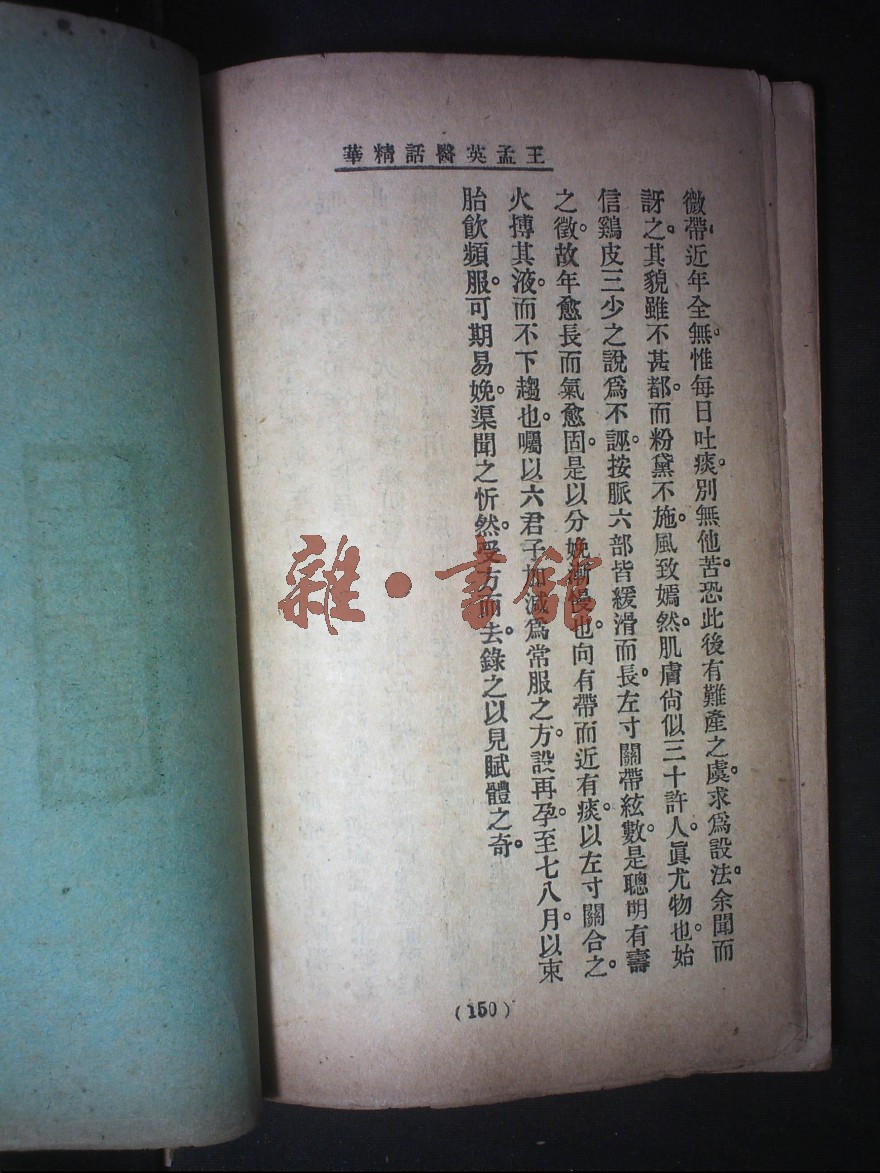 王孟英醫話精華
微帶。近年全無。惟每日吐痰。別無他苦。恐此後有難產之虞。求爲設法。余聞而
訝之。其貌雖不甚都。而粉黛不施。風致嫣然。肌膚尙似三十許人。眞尤物也。始
信鷄皮三少之說爲不誣。按脈六部皆緩滑而長。左寸關帶絃數。是聰明有壽
之徵。故年愈長而氣愈固。是以分娩漸慢也。向有帶而近有痰。以左寸關合之。
火搏其液。而不下趨也。囑以六君子加減爲常服之方。設再孕。至七八月。以束
胎飲頻服。可期易娩。渠聞之忻然。受方而去。錄之以見賦體之奇。
(150)
雜·書館